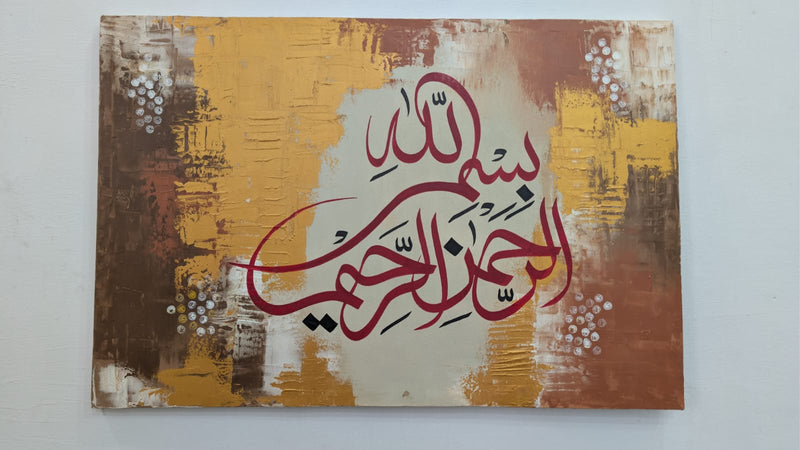 بِسْمِ اللّٰهِ
الرَّحْمٰنِ الرَّحِيْمِ